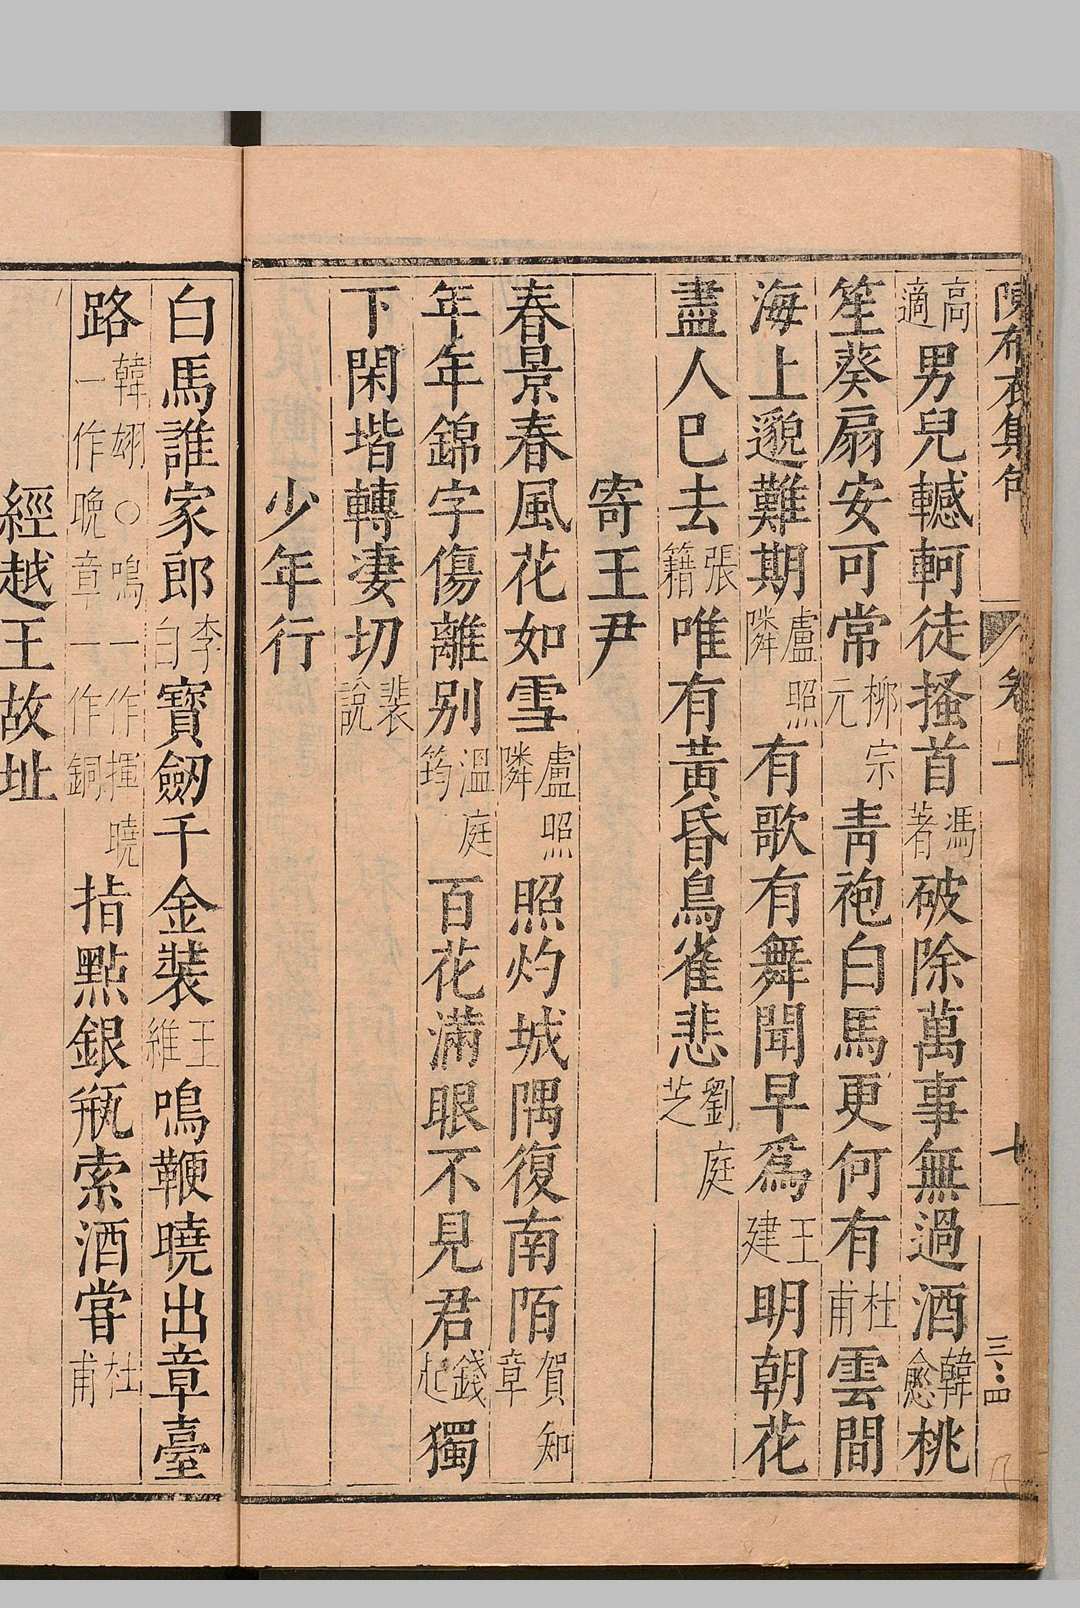 陳布衣集句 卷二 七 三、四
高適男兒轗軻徒搔首馮著破除萬事無過酒韓愈桃
笙葵扇安可常柳宗元青袍白馬更何有杜甫雲間
海上邈難期盧照隣有歌有舞聞早為王建明朝花
盡人已去張籍唯有黃昏鳥雀悲劉庭芝
寄王尹
春景春風花如雪盧照隣照灼城隅復南陌賀知章
年年錦字傷離別溫庭筠百花滿眼不見君錢起獨
下閑堦轉淒切裴說
少年行
白馬誰家郎李白寶劒千金裝王維鳴鞭曉出章臺
路韓翃○鳴一作揮曉一作晚章一作銅指點銀瓶索酒甞杜甫
經越王故址